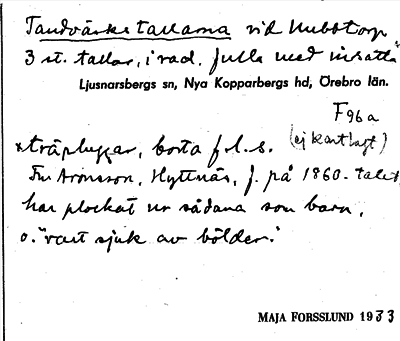 Tandvärkstallarna vid Nubbtorp
3 st. tallar, i rad, fulla med insatta"
Ljusnarsbergs sn, Nya Kopparbergs hd, Örebro län.
F96a
(ej kartlagt)
träpluggar, borta f.l.s.
Fru Aronsson, Hyttnäs, f. på 1860-talet
har plockat ur sådana som barn,
o. "vart sjuk av bölder."
MAJA FORSSLUND 1933